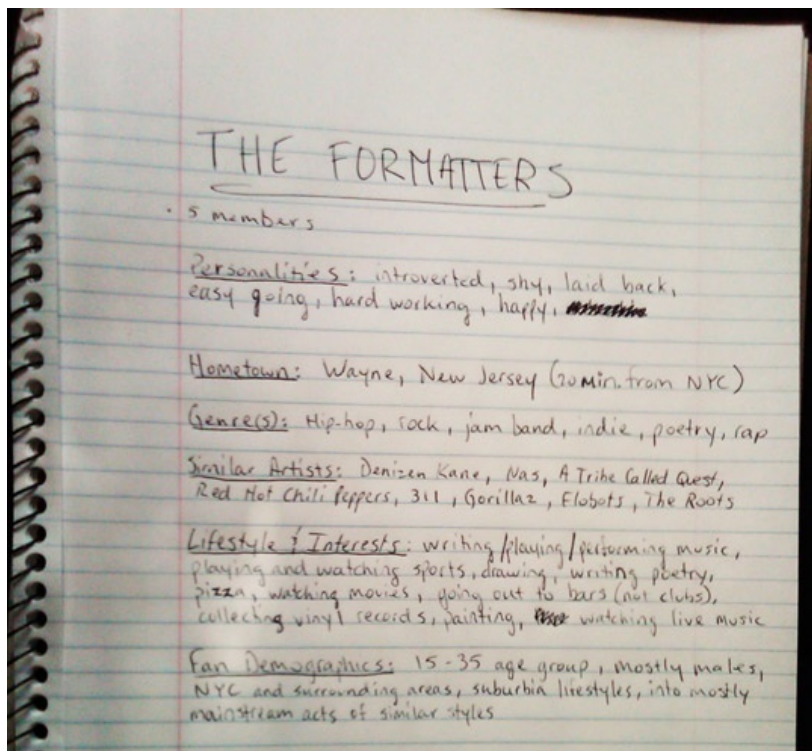 THE FORMATTERS
· 5 members
Personalities: introverted, shy, laid back,
easy going, hard working, happy,
Hometown: Wayne, New Jersey (20 min. from NYC)
Genre(s): Hip-hop, rock, jam band, indie, poetry, rap
Similar Artists: Denizen Kane, Nas, A Tribe Called Quest,
Red Hot Chili Peppers, 311, Gorillaz, Flobots, The Roots
Lifestyle & Interests: writing/playing/performing music,
playing and watching sports, drawing, writing poetry,
pizza, watching movies, going out to bars (not clubs),
collecting vinyl records, painting, watching live music
Fan Demographics: 15-35 age group, mostly males,
NYC and surrounding areas, suburbin lifestyles, into mostly
mainstream acts of similar styles